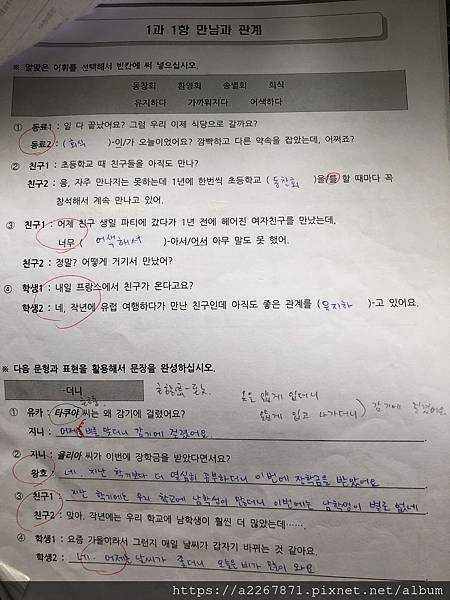 1과 1항 만남과 관계
※ 알맞은 어휘를 선택해서 빈칸에 써 넣으십시오.
동창회 환영회 송별회 회식
유지하다 가까워지다 어색하다
① 동료1 : 일 다 끝났어요? 그럼 우리 이제 식당으로 갈까요?
동료2 : ( 회식 )-이/가 오늘이었어요? 깜빡하고 다른 약속을 잡았는데, 어쩌죠?
② 친구1 : 초등학교 때 친구들을 아직도 만나?
친구2 : 응, 자주 만나지는 못하는데 1년에 한번씩 초등학교 ( 동창회 )을/를 할 때마다 꼭
참석해서 계속 만나고 있어.
③ 친구1 : 어제 친구 생일 파티에 갔다가 1년 전에 헤어진 여자친구를 만났는데,
너무 ( 어색해서 )-아서/어서 아무 말도 못 했어.
친구2 : 정말? 어떻게 거기서 만났어?
④ 학생1 : 내일 프랑스에서 친구가 온다고요?
학생2 : 네, 작년에 유럽 여행하다가 만난 친구인데 아직도 좋은 관계를 ( 유지하 )-고 있어요.
※ 다음 문형과 표현을 활용해서 문장을 완성하십시오.
-더니
옷을 얇게 입더니
① 유카 : 타쿠야 씨는 왜 감기에 걸렸어요?
얇게 입고 나가더니 ) 감기에 걸렸어요.
지니 : 어제 비를 맞더니 감기에 걸렸어요.
② 지니 : 율리아 씨가 이번에 장학금을 받았다면서요?
왕호 : 네. 지난 학기보다 더 열심히 공부하더니 이번에 장학금을 받았어요
③ 친구1 : 지난 학기에는 우리 학교에 남학생이 많더니 이번에는 남학생이 별로 없네
친구2 : 맞아, 작년에는 우리 학교에 남학생이 훨씬 더 많았는데…….
④ 학생1 : 요즘 가을이라서 그런지 매일 날씨가 갑자기 바뀌는 것 같아요.
학생2 : 네. 어제는 날씨가 좋더니 오늘은 비가 많이 와요
https://a2267871.pixnet.net/album